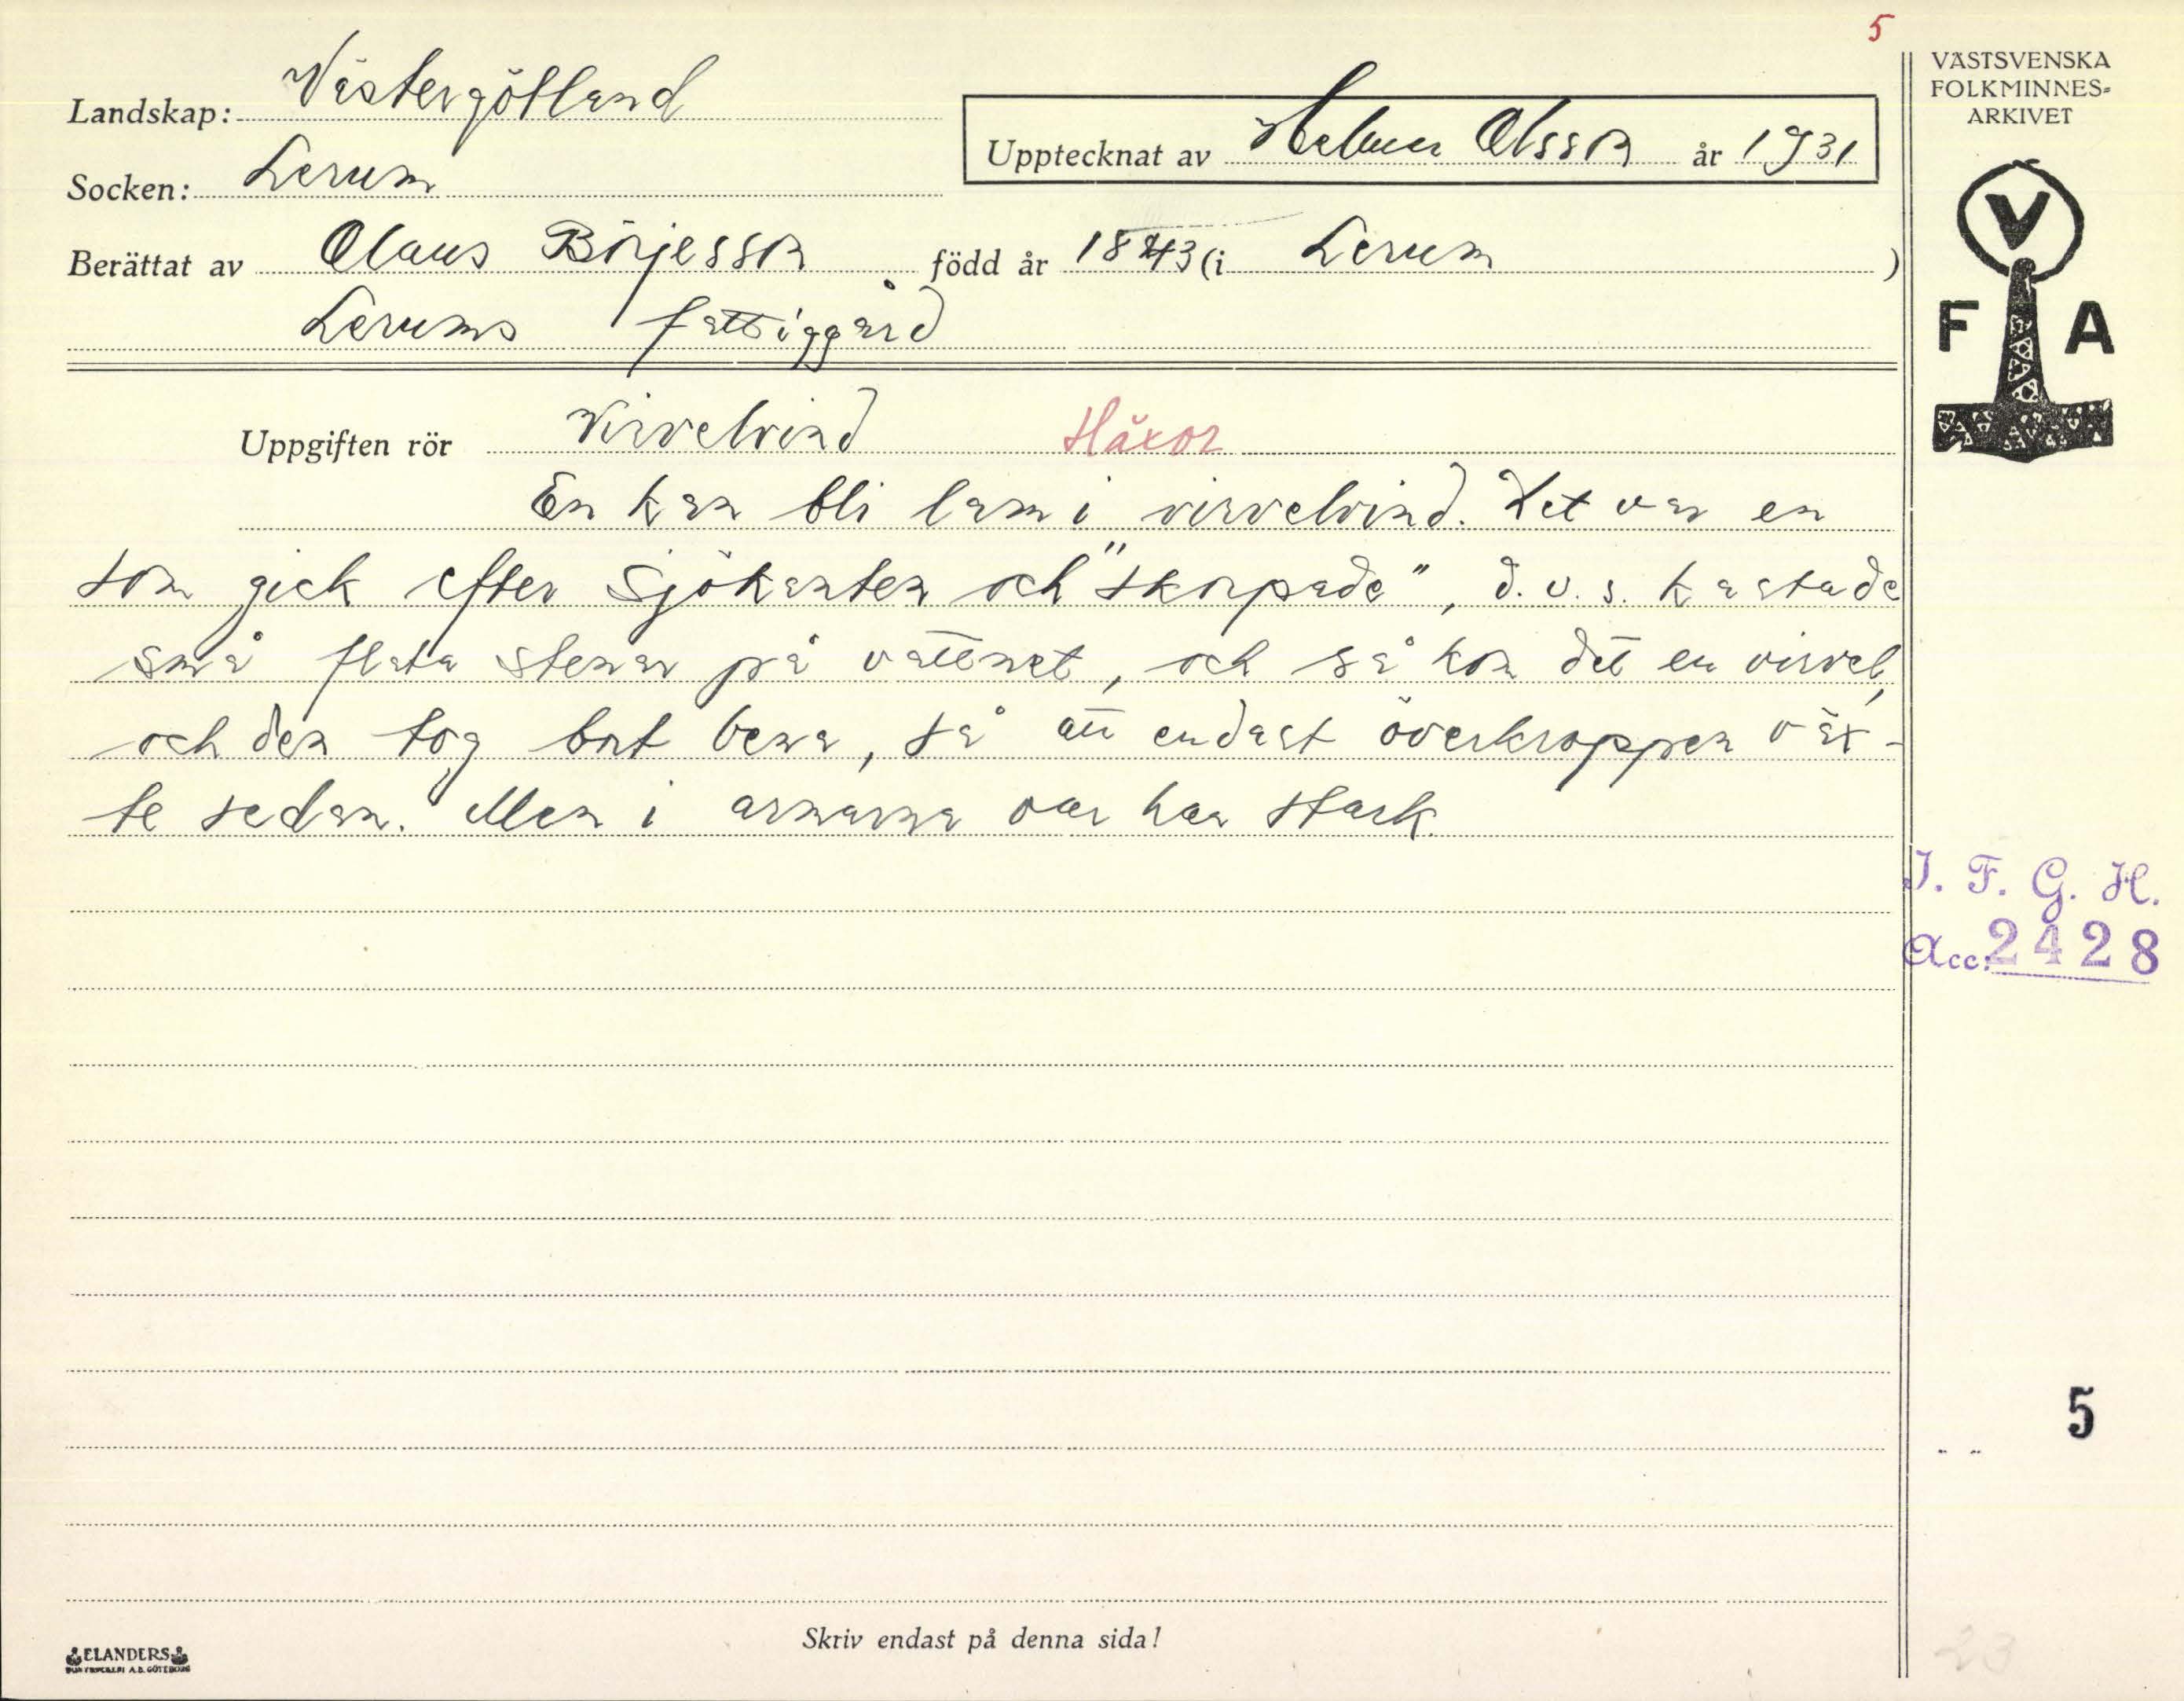 5
Landskap: Västergötland
Socken: Lerum
Upptecknat av Helmer Olsson år 1931
Berättat av Claus Börjesson född år 1843 (i Lerum )
Lerums fattiggård
Uppgiften rör Virvelvind Häxor
En kan bli lam i virvelvind. Det var en
som gick efter sjökanten och "skorpade", d.v.s. kastade
små flata stenar på vattnet, och så kom det en virvel,
och den tog bort bena, så att endast överkroppen väx-
te sedan. Men i armarna var han stark.
Skriv endast på denna sida!
ELANDERS
BOKTRYCKERI A.B. GÖTEBORG
VÄSTSVENSKA
FOLKMINNES-
ARKIVET
V
F A
I. F. G. H.
Acc. 2428
5
23